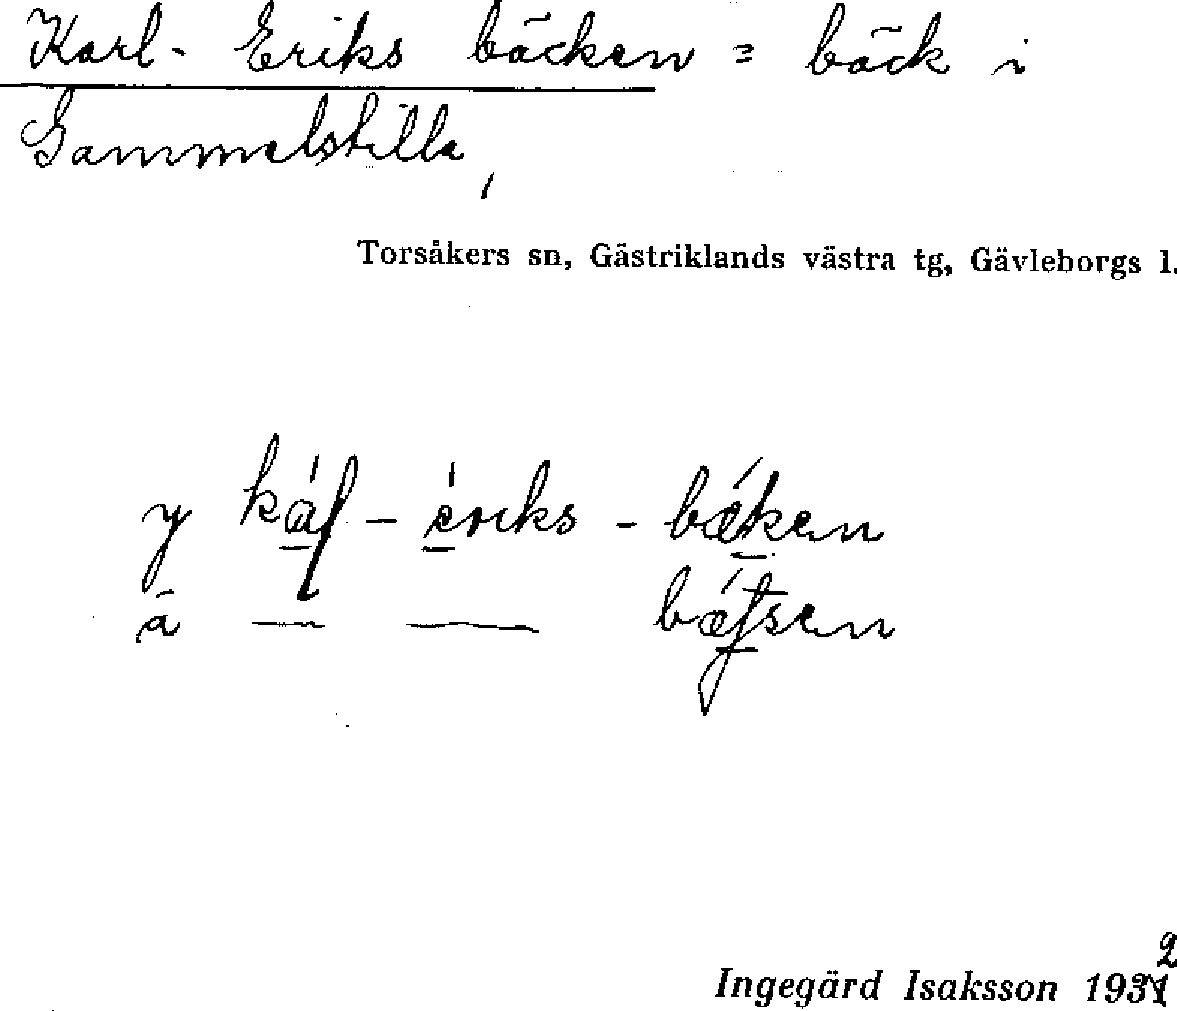 Karl-Eriks bäcken = bäck i
Gammelstilla,
Torsåkers sn, Gästriklands västra tg, Gävleborgs l.
y káɭ - ériks - bǽken
ä — — bǽʈsen
Ingegärd Isaksson 1932